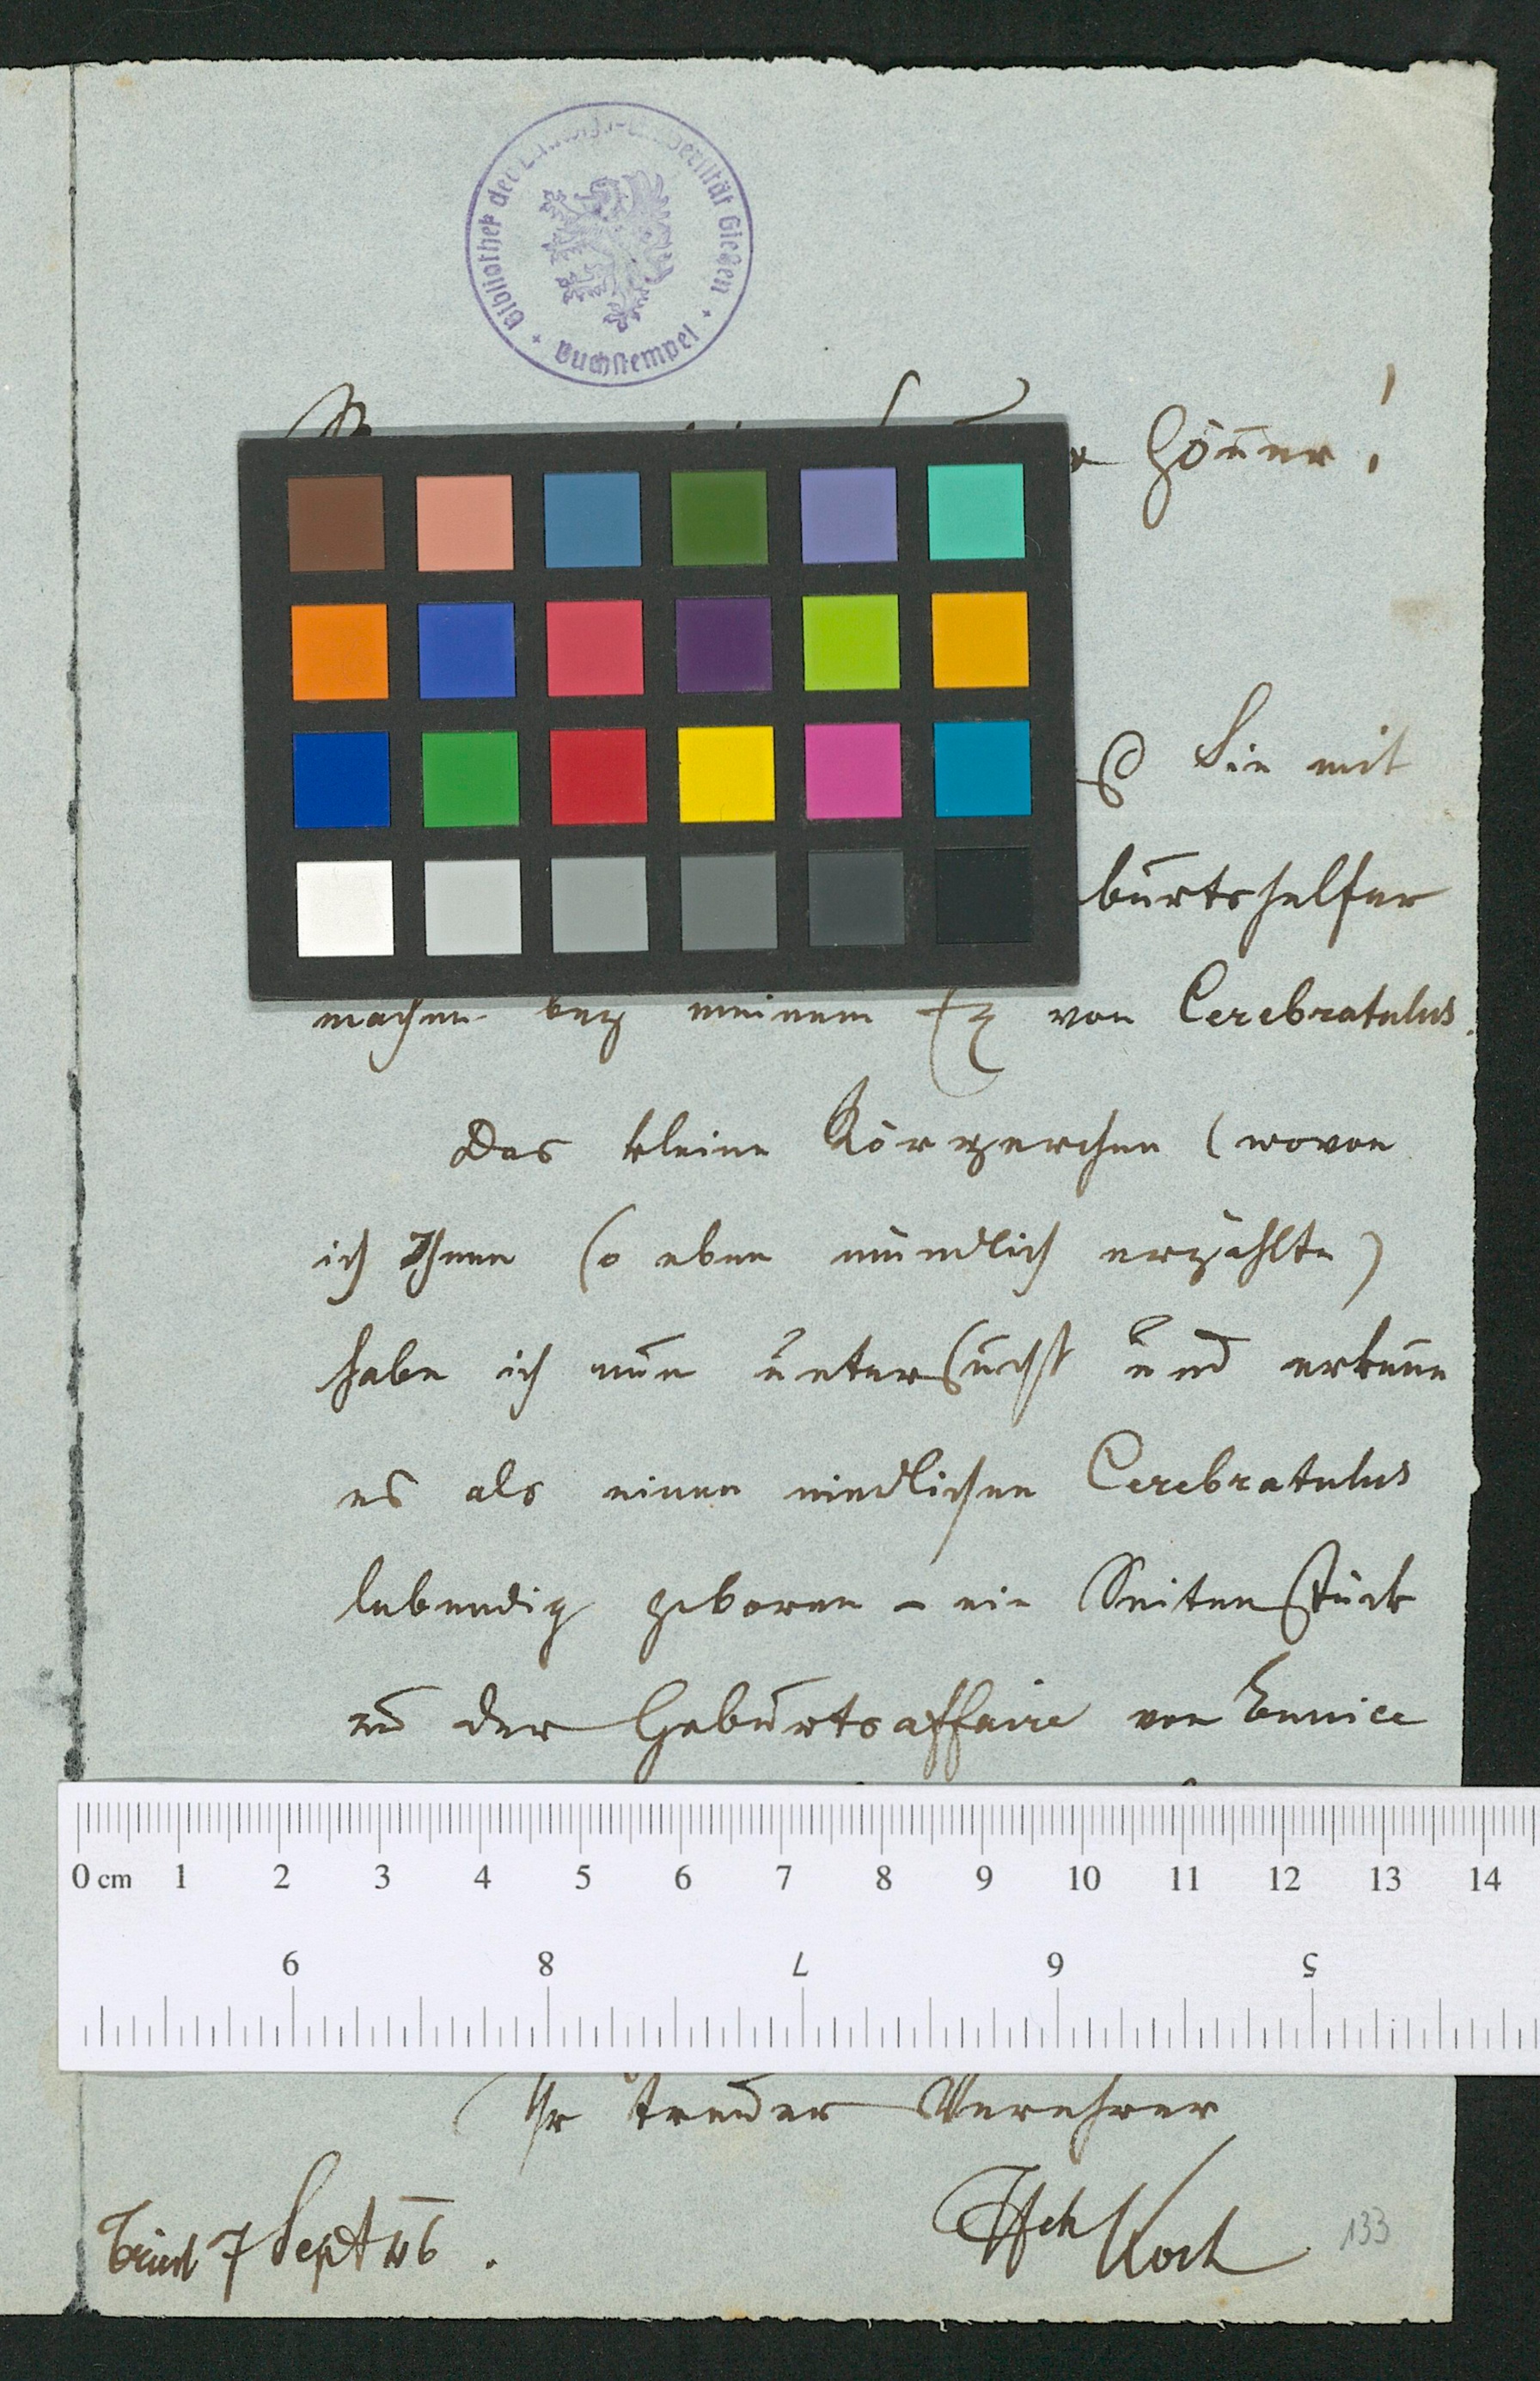 Bibliothek der Ludwigs-Universität Gießen
Buchstempel
Gönner!
Sie mit
burtshelfer
machen bey meinem Ex von Cerebratulus.
Das kleine Körperchen (wovon
ich Ihnen so eben mündlich erzählte)
habe ich nun untersucht und erkenne
es als einen niedlichen Cerebratulus
lebendig geboren – ein Seitenstück
zu der Geburtsaffaire von Eunice
0 cm 1 2 3 4 5 6 7 8 9 10 11 12 13 14
9 8 7 6 5
Ihr treuer Verehrer
Triest 7 Sept 46.
Koch
133